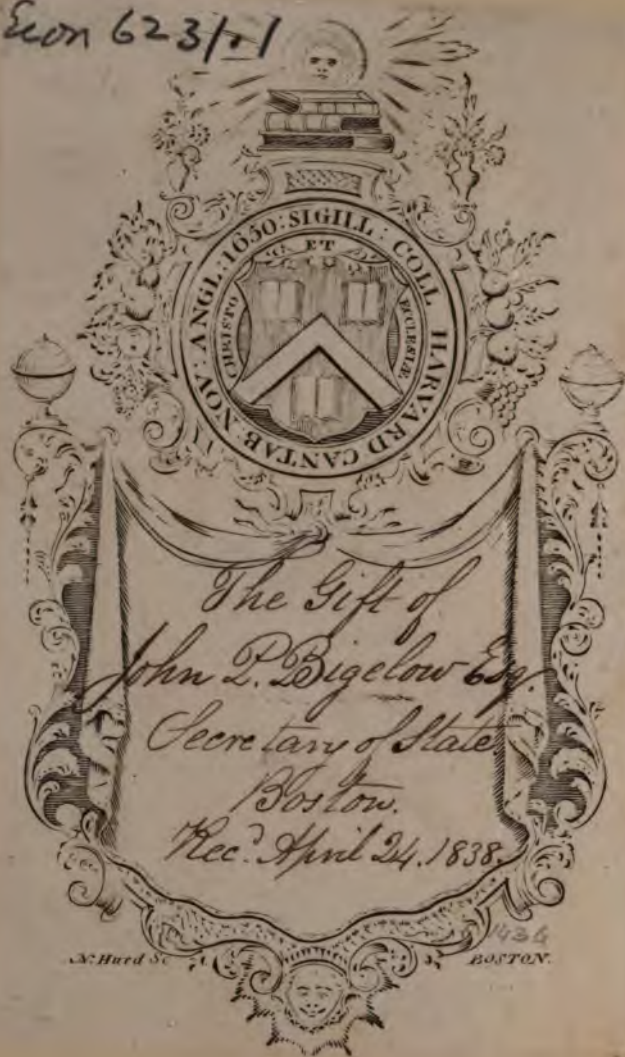 Econ 623/1.1
SIGILL: COLL HARVARD CANTAB: NOV: ANGL: 1650:
CHRISTO ET ECCLESIÆ
The Gift of
John P. Bigelow Esq.
Secretary of State,
Boston.
Rec.d April 24. 1838.
1434
N. Hurd Sc
BOSTON.